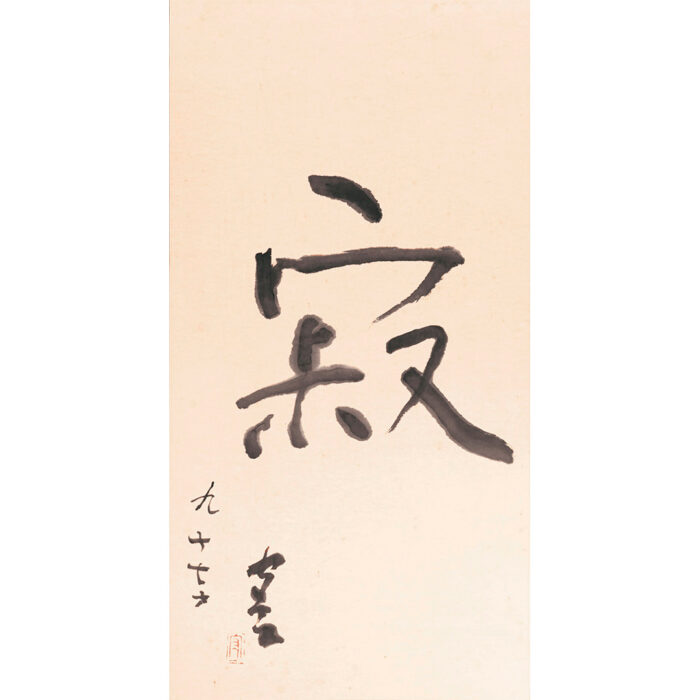 寂
九十七才